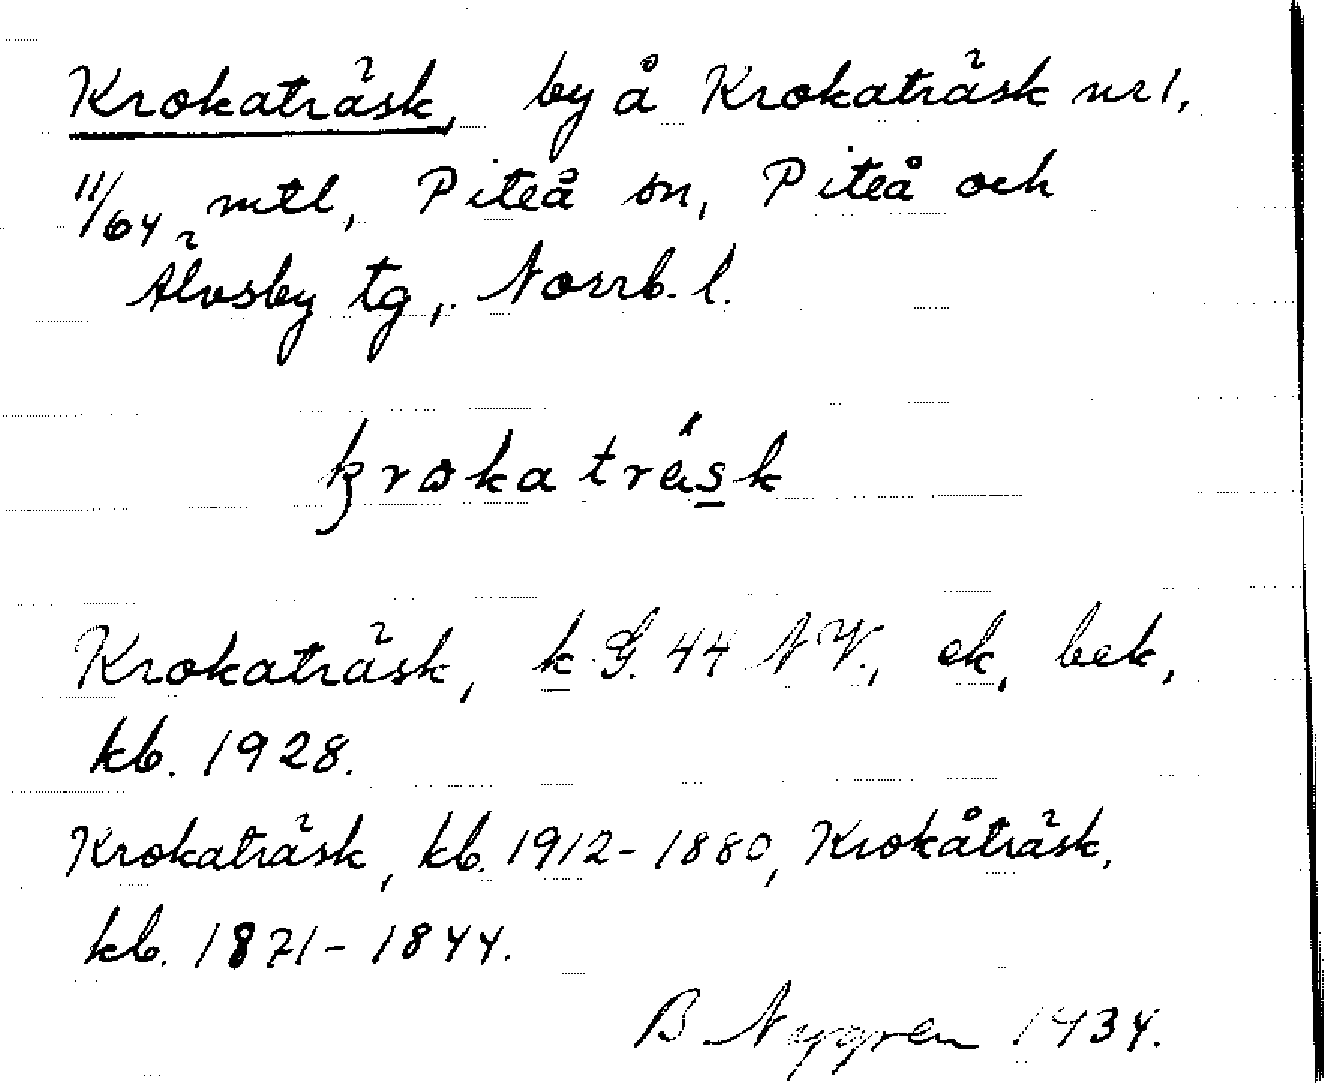 Krokaträsk, by å Krokaträsk nr 1,
11/64 mtl, Piteå sn, Piteå och
Älvsby tg, Norrb. l.
krokaträsk
Krokaträsk, k G. 44 NV., ek, bek,
kb. 1928.
Krokaträsk, kb. 1912-1880, Krokåträsk,
kb. 1871-1844.
B Nygren 1934.